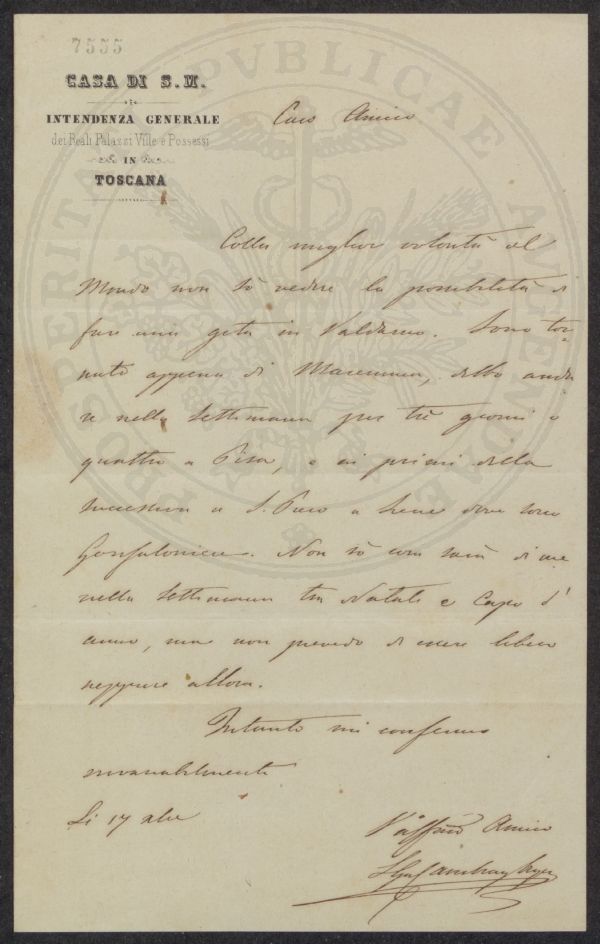 7555
CASA DI S. M.
INTENDENZA GENERALE
dei Reali Palazzi Ville e Possessi
IN
TOSCANA
Caro Amico
Colla miglior volontà del
Mondo non sò vedere la possibilità di
fare una gita in Valdarno. Sono tor=
nato appena di Maremma, debbo anda
re nella settimana per trè giorni o
quattro a Pisa, e ai primi della
successiva a S. Piero a Sieve dove sono
Gonfaloniere. Non sò cosa sarà di me
nella settimana tra Natale e Capo d'
anno, ma non prevedo di essere libero
neppure allora.
Intanto mi confermo
invariabilmente
Li 17 xbre
L'affmo Amico
Cambray Digny
PROSPERITATI PVBLICAE AVGENDAE